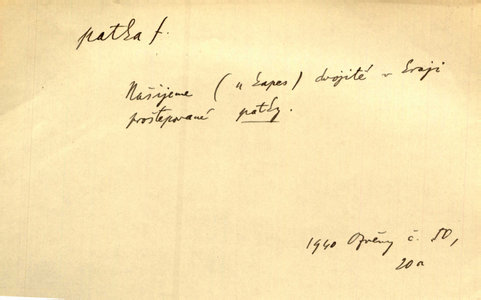 patka f.
Našijeme (u kapes) dvojité v kraji
prošťepované patky.
1940 č. 50,
20a